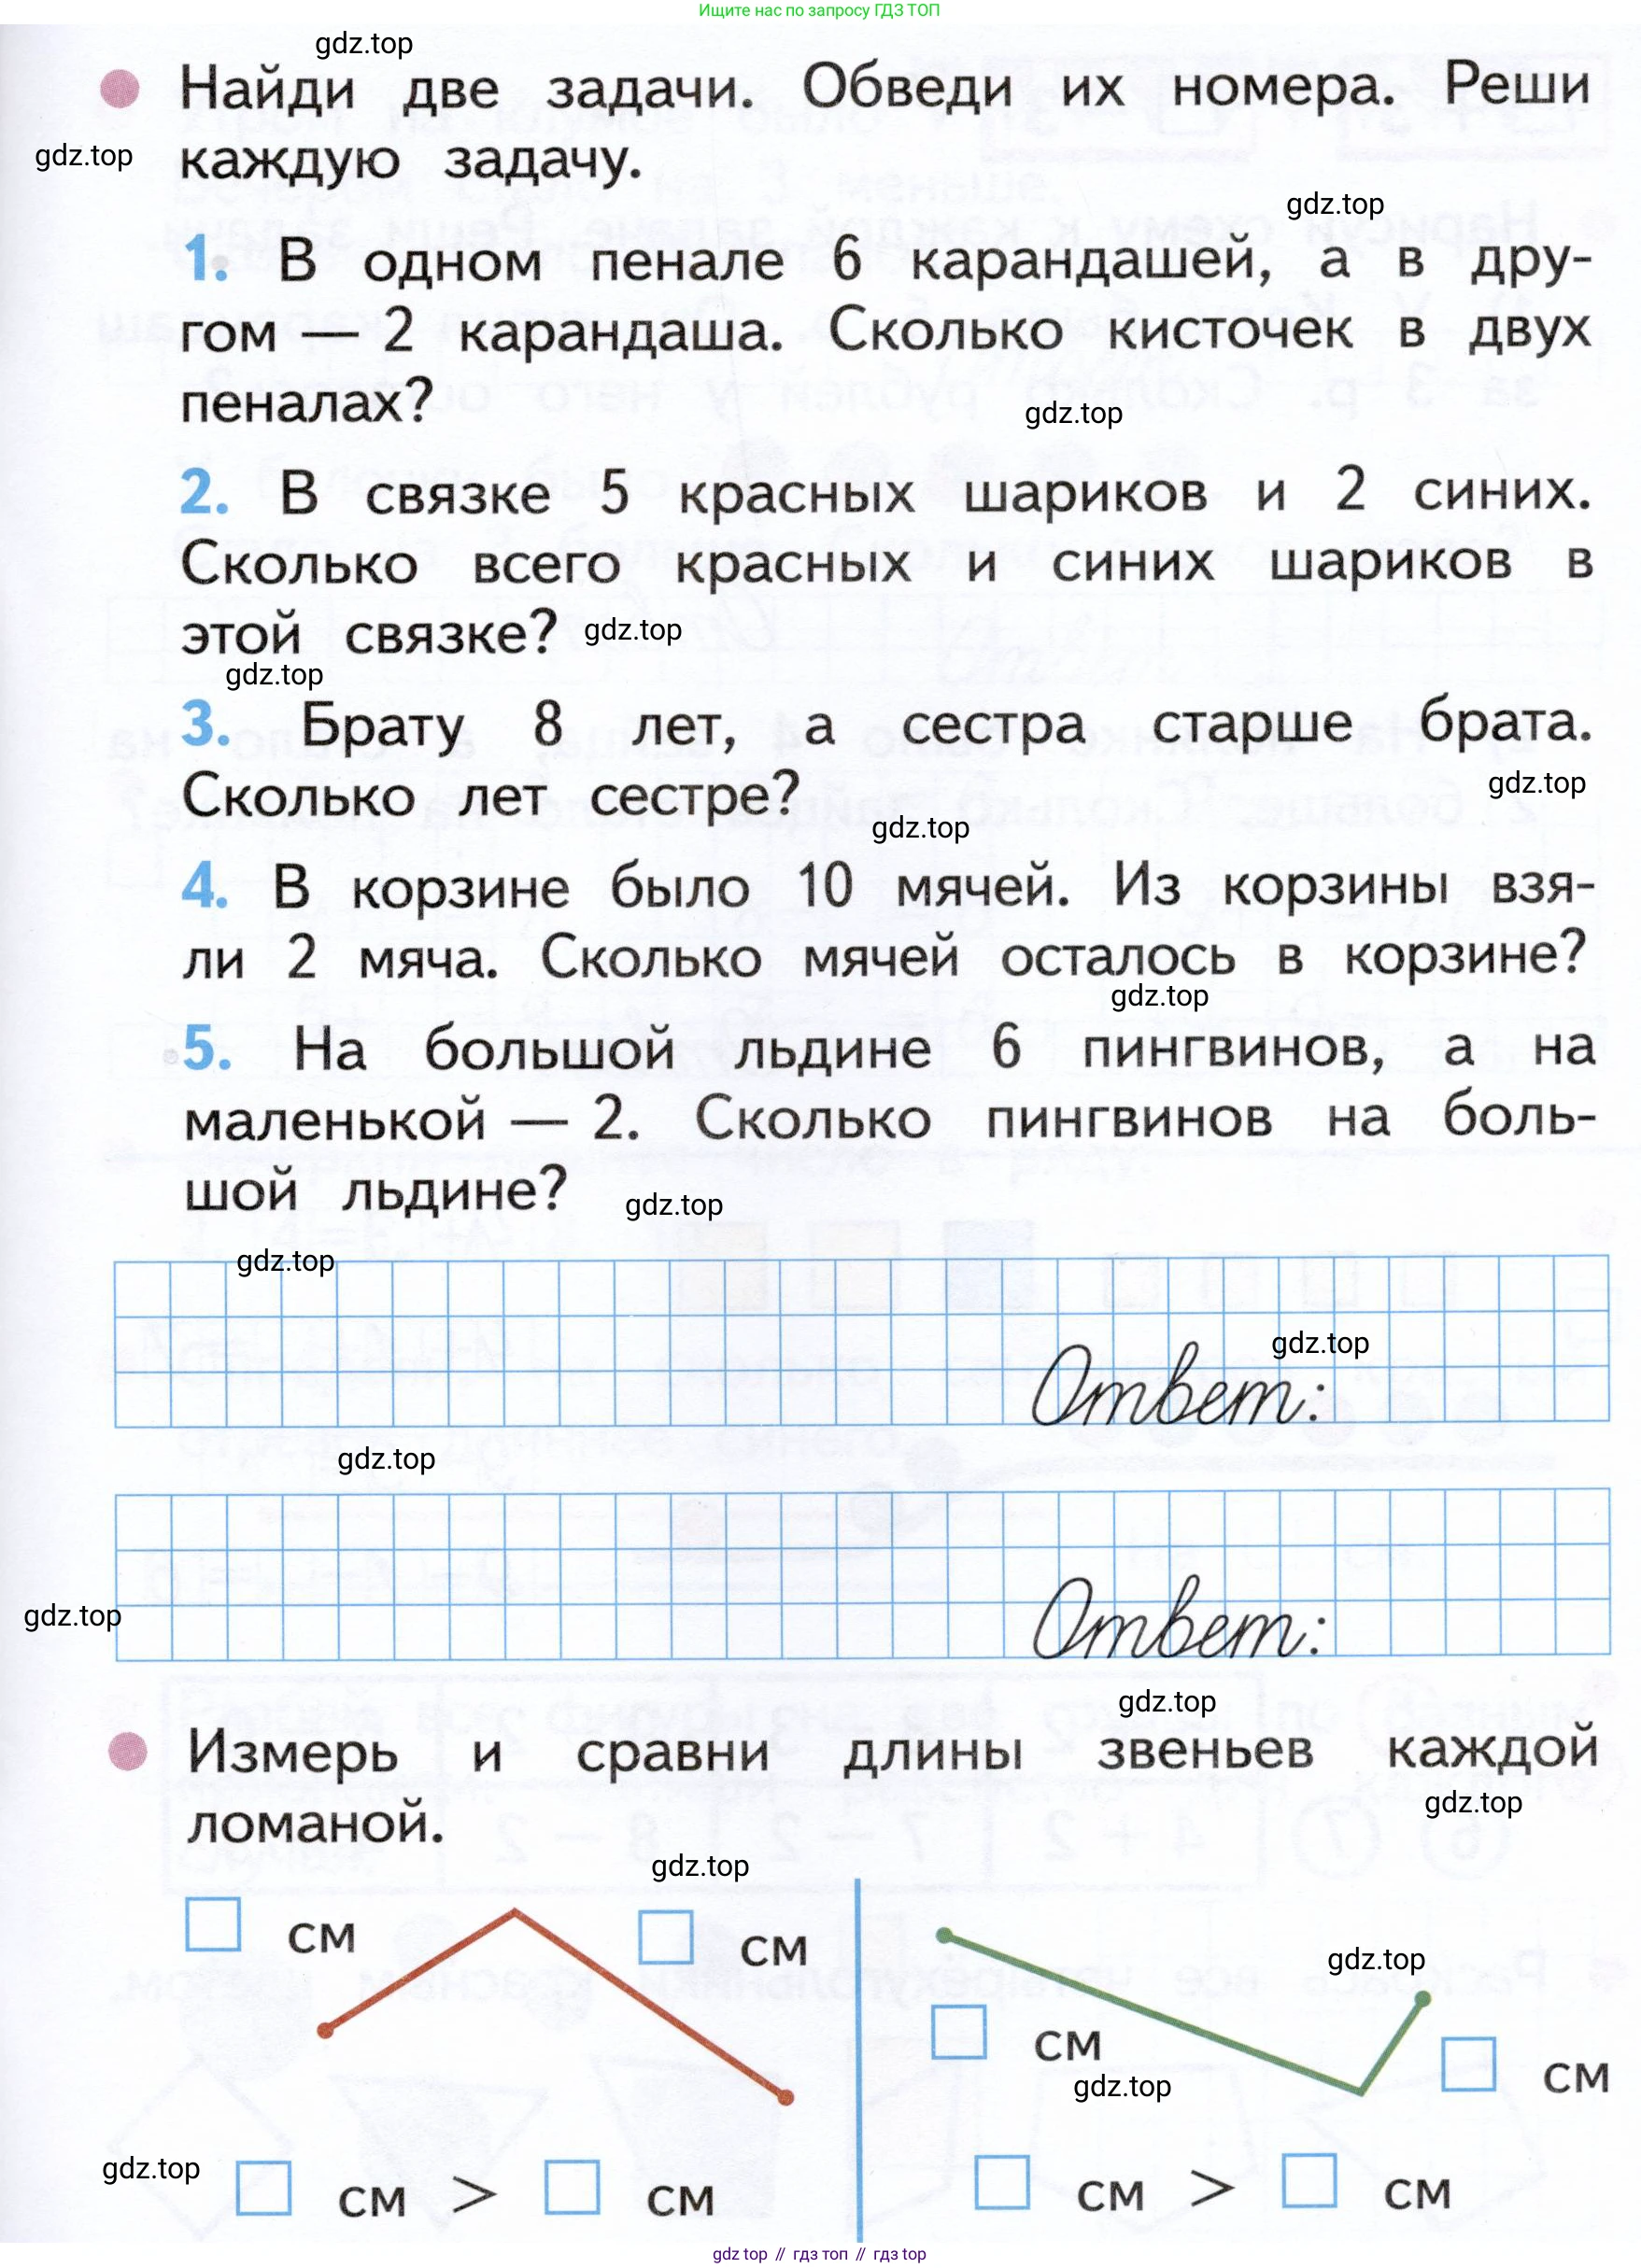 Ищите нас по запросу ГДЗ ТОП
gdz.top
Найди две задачи. Обведи их номера. Реши
gdz.top каждую задачу.
gdz.top
1. В одном пенале 6 карандашей, а в дру-
гом — 2 карандаша. Сколько кисточек в двух
пеналах?
gdz.top
2. В связке 5 красных шариков и 2 синих.
Сколько всего красных и синих шариков в
этой связке? gdz.top
gdz.top
3. Брату 8 лет, а сестра старше брата.
Сколько лет сестре? gdz.top
gdz.top
4. В корзине было 10 мячей. Из корзины взя-
ли 2 мяча. Сколько мячей осталось в корзине?
gdz.top
5. На большой льдине 6 пингвинов, а на
маленькой — 2. Сколько пингвинов на боль-
шой льдине? gdz.top
gdz.top
gdz.top
Ответ:
gdz.top
gdz.top Ответ:
gdz.top
Измерь и сравни длины звеньев каждой
gdz.top
ломаной.
gdz.top
см см
gdz.top
см см
gdz.top
gdz.top см > см см > см
gdz top // гдз топ // гдз top